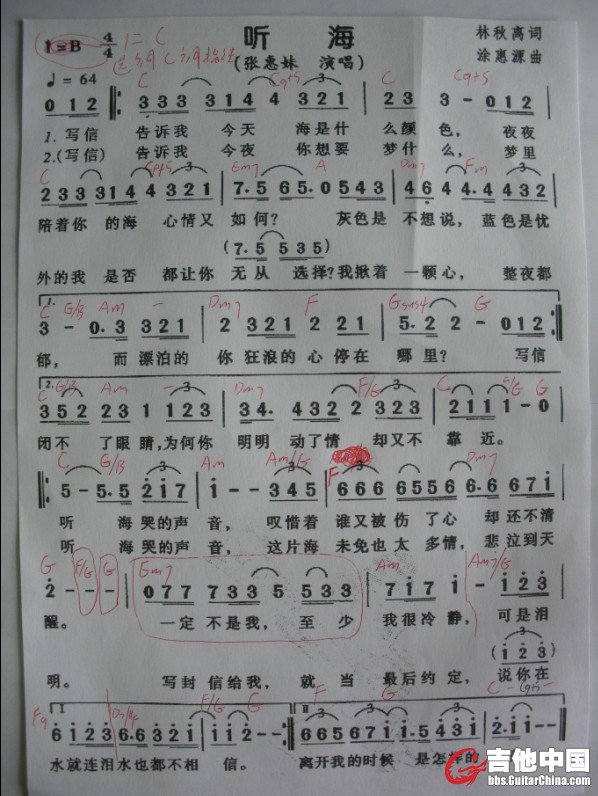 1=B 4/4 1=C 听 海 林秋离词
选调C调指法 (张惠妹 演唱) 涂惠源 曲
♩=64 C Cq+5 C Cq+5
0 1 2 3 3 3 3 1 4 4 3 2 1 2 3 3 - 0 1 2
1. 写信 告诉我 今天 海是什 么颜 色, 夜夜
2.(写信) 告诉我 今夜 你想要 梦什 么, 梦里
C Em7 A Dm7 Fm
2 3 3 3 1 4 4 3 2 1 7. 5 6 5. 0 5 4 3 4 6 4 4. 4 4 3 2
陪着你 的海 心情又 如何? 灰色是 不想说, 蓝色是忧
(7. 5 5 3 5)
外的我 是否 都让你 无从 选择?我揪着 一颗心, 整夜都
1.
C G/B Am - Dm7 F Gsus4 G
3 - 0. 3 3 2 1 2 3 2 1 2 2 2 1 5. 2 2 - 0 1 2
郁, 而漂泊的 你狂浪的心停在 哪里? 写信
2.
C G/B Am - Dm7 F/G C F/G G
3 5 2 2 3 1 1 2 3 3 4. 4 3 2 2 3 2 3 2 1 1 1 - 0
闭不 了眼睛,为何你 明明 动了情 却又不 靠近。
C G/B Am Am/G F Dm7
5 - 5. 5 2 1 7 1 - - 3 4 5 6 6 6 6 5 5 6 6. 6 6 7 1
听 海哭的声 音, 叹惜着 谁又被伤 了心 却还不清
听 海哭的声 音, 这片海 未免也太 多情, 悲泣到天
G F/G G Em7 Am Am7/G
2 - - - 0 7 7 7 3 3 5 5 3 3 7 1 7 1 - 1 2 3
醒。 一定 不是我, 至少 我很冷 静, 可是泪
(1 2 3)
明。 写封 信给我, 就当 最后约定, 说你在
I II
F/G F G C
6 1 2 3 6. 6 3 2 1 1 1 - - 6 6 5 6 7 1
水就连泪水也都不相 信。 离开我的时候 是怎样的
吉他中国
bbs.GuitarChina.com